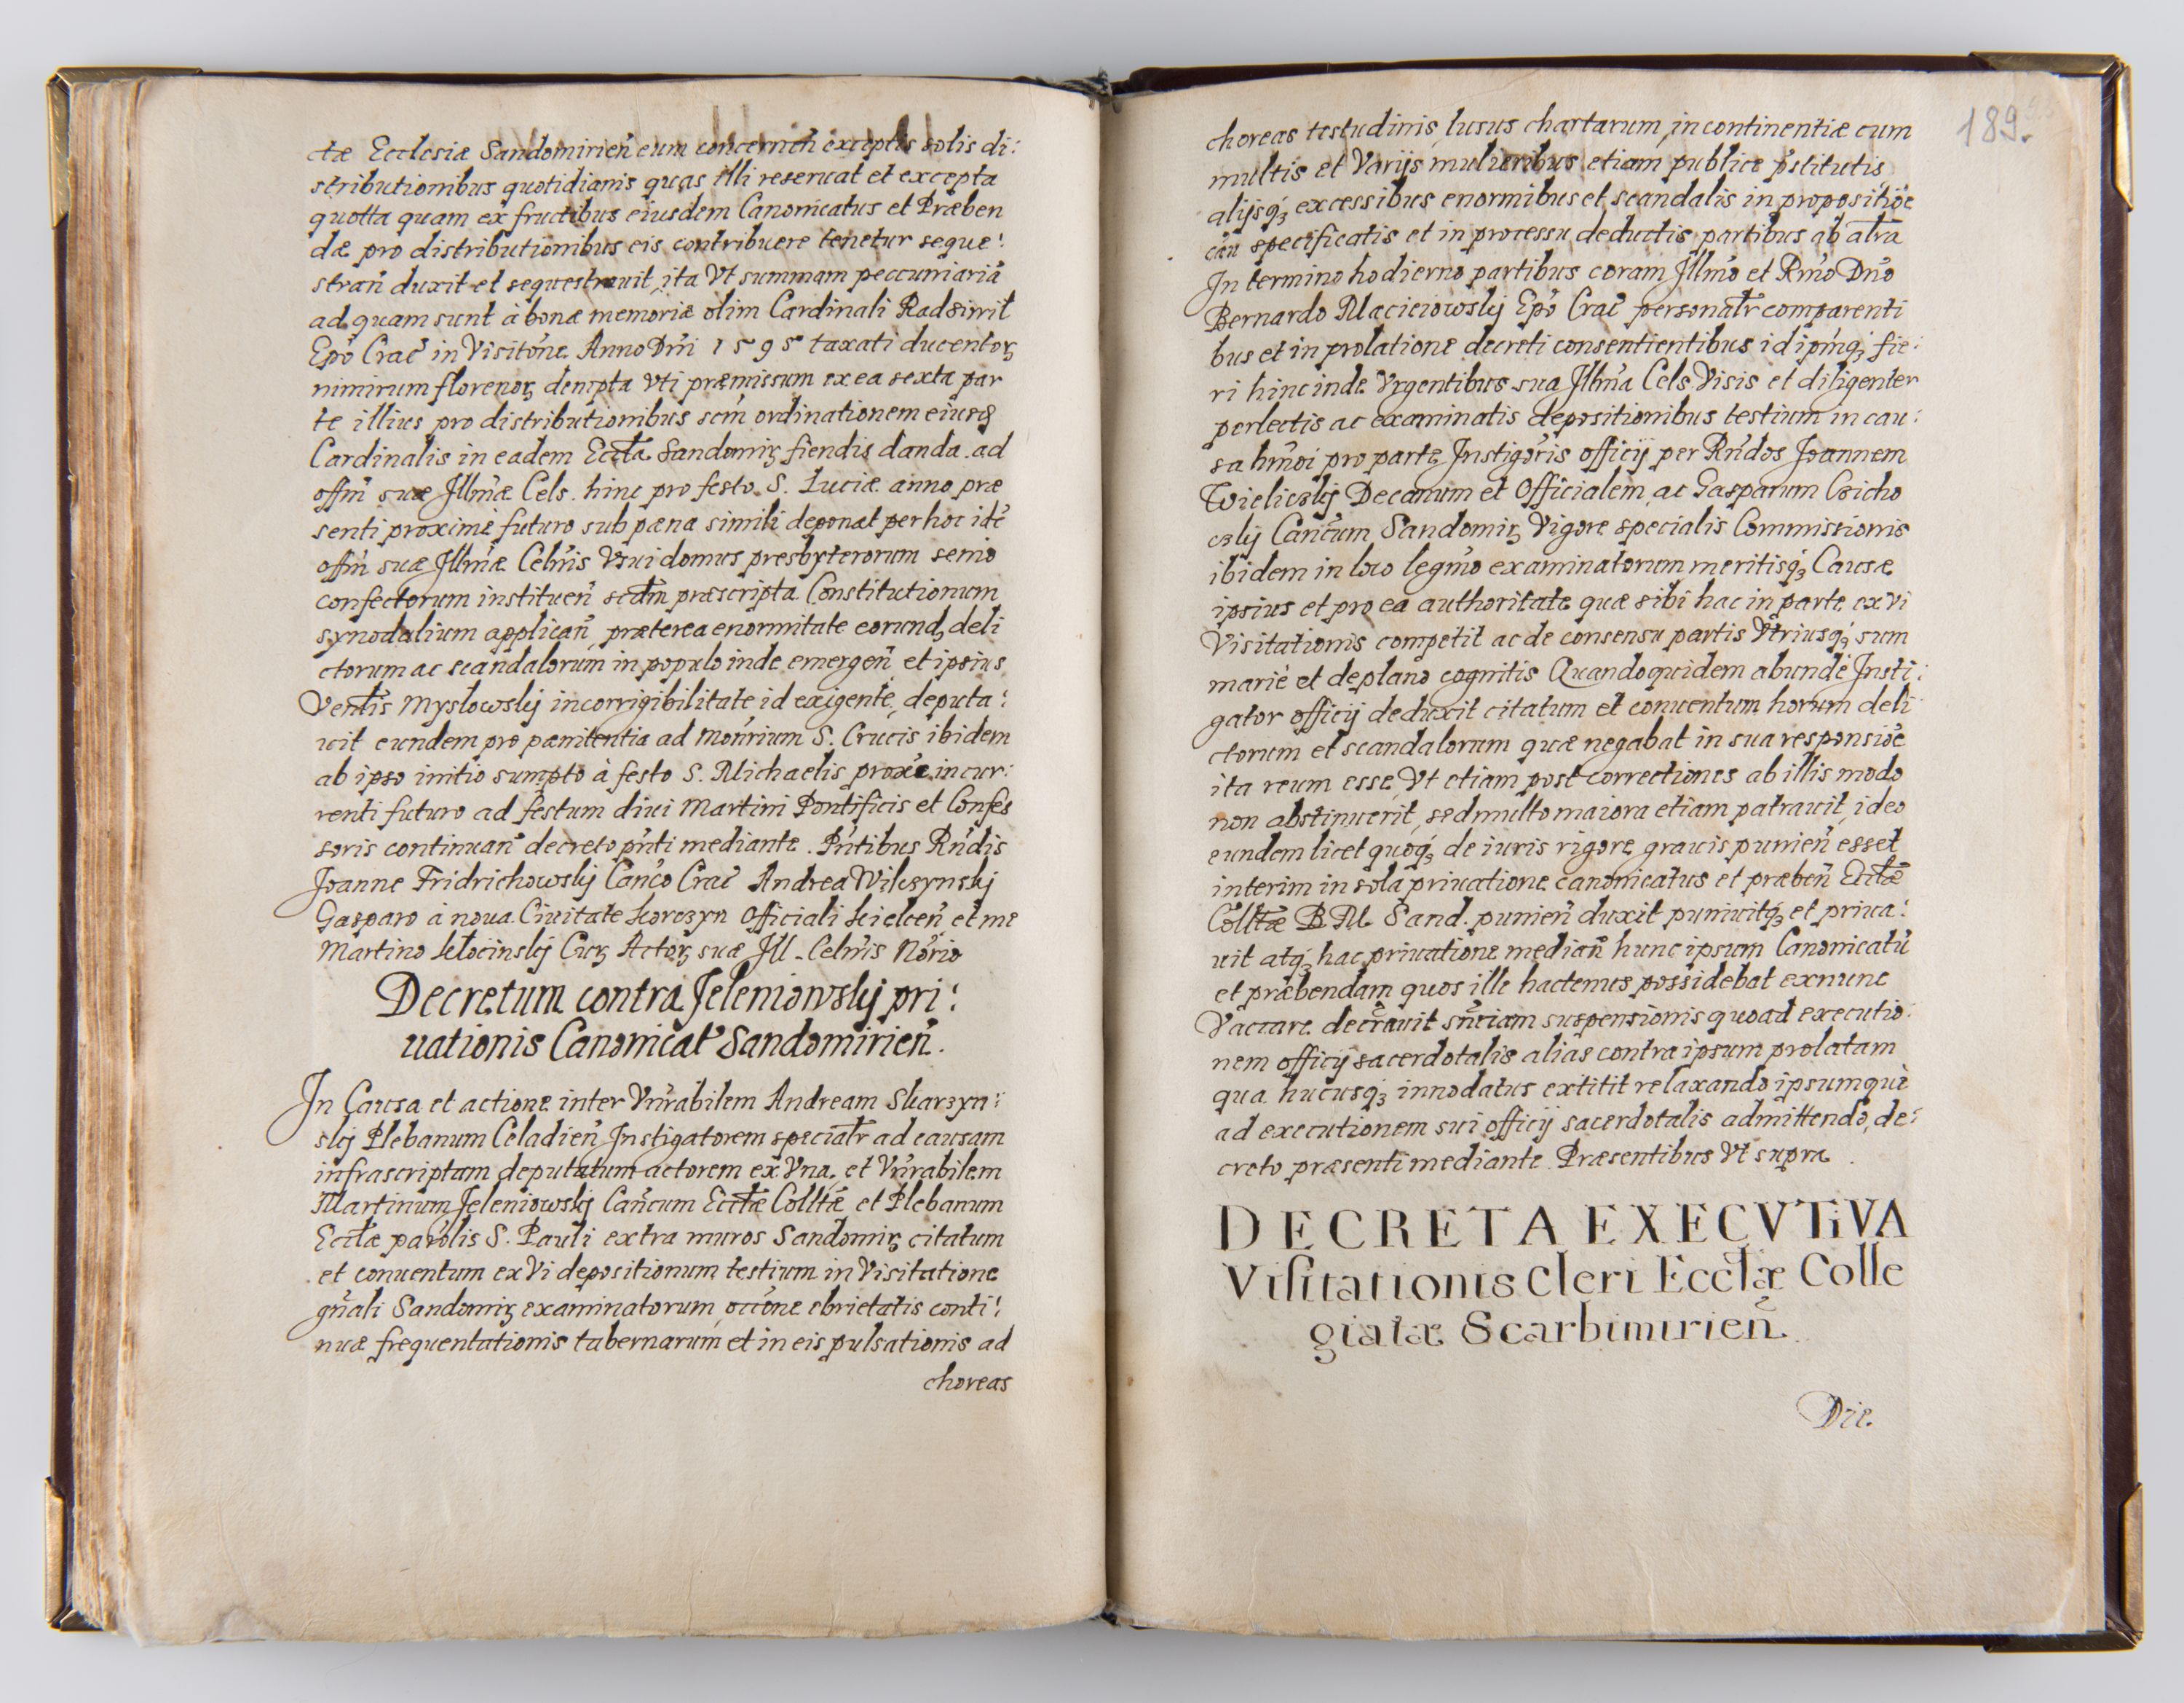 ctæ Ecclesiæ Sandomirień eum concerneń exceptis solis di:
stributionibus quotidianis quas illi reseruat et excepta
quotta quam ex fructibus eiusdem Canonicatus et Præben
dæ pro distributionibus eis contribuere tenetur seque:
strań duxit et sequestrauit, ita Vt summam peccuniariã
ad quam sunt à bonæ memoriæ olim Cardinali Radziwil
Epo Crac in Visitone Anno Dni 1595 taxati ducentoꝝ
nimirum florenoꝝ dempta vti præmissum ex ea sexta par
te illius pro distributionibus scm ordinationem eiusd
Cardinalis in eadem Eccla Sandomiꝝ fiendis danda ad
offm suæ Illmæ Cels. hinc pro festo S. Luciæ anno præ
senti proximè futuro sub pæna simili deponat per hoc idẽ
offm suæ Illmæ Celnis Vsui domus presbyterorum senio
confectorum instituen sctdm præscripta Constitutionum
synodalium applicań, præterea enormitate eorund deli
ctorum ac scandalorum in populo inde emergeń et ipsius
Ventis Myslowskj incorrigibilitate id exigente, deputa:
uit eundem pro pænitentia ad Monrium S. Crucis ibidem
ab ipso initio sumpto à festo S. Michaelis proxe incur:
renti futuro ad festum diui Martini Pontificis et Confes
soris continuań decreto pnti mediante. Pntibus Rndis
Joanne Fridrichowskj Canco Crac Andrea Wilczynskj
Gasparo à noua Ciuitate Korczyn Officiali Kielceń et me
Martino Kłocinskj Cuꝝ Actoꝝ suæ Ill. Celnis Norio
Decretum contra Jeleniowskj pri:
uationis Canonicat Sandomirień.
In Causa et actione inter Vnrabilem Andream Skarzyn:
skj Plebanum Celadień Instigatorem specialr ad causam
infrascriptam deputatum actorem ex Vna, et Vnrabilem
Martinum Jeleniowskj Cancum Ecclæ Colltæ et Plebanum
Ecclæ parolis S. Pauli extra muros Sandomiꝝ citatum
et conuentum ex Vi depositionum testium in Visitatione
gnali Sandomiꝝ examinatorum, occone ebrietatis conti:
nuæ frequentationis tabernarum et in eis pulsationis ad
choreas
189.
choreas testudinis, lusus chartarum, incontinentiæ cum
multis et Varijs mulieribus etiam publice pstitutis
alijsqꝫ excessibus enormibus et scandalis in propositiõe
cau specificatis et in processu deductis partibus ab alra
In termino hodierno partibus coram Illmo et Rmo Dno
Bernardo Macieiowskj Epo Crac personalr comparenti
bus et in prolatione decreti consentientibus id ipmqꝫ fie:
ri hinc inde Vrgentibus sua Illma Cels. Visis et diligenter
perlectis ac examinatis depositionibus testium in cau:
sa hmoi pro parte Instigoris officij per Rndos Joannem
Wieliczkj Decanum et Officialem ac Gasparum Czicho
czkj Cancum Sandomiꝝ Vigore specialis Commissionis
ibidem in loco legmo examinatorum meritisqꝫ Causæ
ipsius et pro ea authoritate quæ sibi hac in parte ex vi
Visitationis competit ac de consensu partis Vtriusqꝫ sum
mariè et de plano cognitis Quandoquidem abundè Insti:
gator officij deduxit citatum et conuentum horum deli
ctorum et scandalorum quæ negabat in sua responsiõe
ita reum esse, Vt etiam post correctiones ab illis modo
non abstinuerit, sed multo maiora etiam patrauit, ideo
eundem licet quoqꝫ de iuris rigore grauis punień esset
interim in sola priuatione canonicatus et præbeń Ecclæ
Colltæ B. M. Sand. punień duxit puniuitqꝫ et priua:
uit atqꝫ hac priuatione mediań hunc ipsum Canonicatũ
et præbendam quos ille hactenus possidebat exnunc
Vaccare decrauit snciam suspensionis quoad executio:
nem officij sacerdotalis aliàs contra ipsum prolatam
qua hucusqꝫ innodatus extitit relaxando ipsumquè
ad executionem sui officij sacerdotalis admittendo, de:
creto præsenti mediante. Præsentibus Vt supra.
DECRETA EXECVTiVA
Visitationis Cleri Ecclæ Colle
giatæ Scarbimirień.
Die